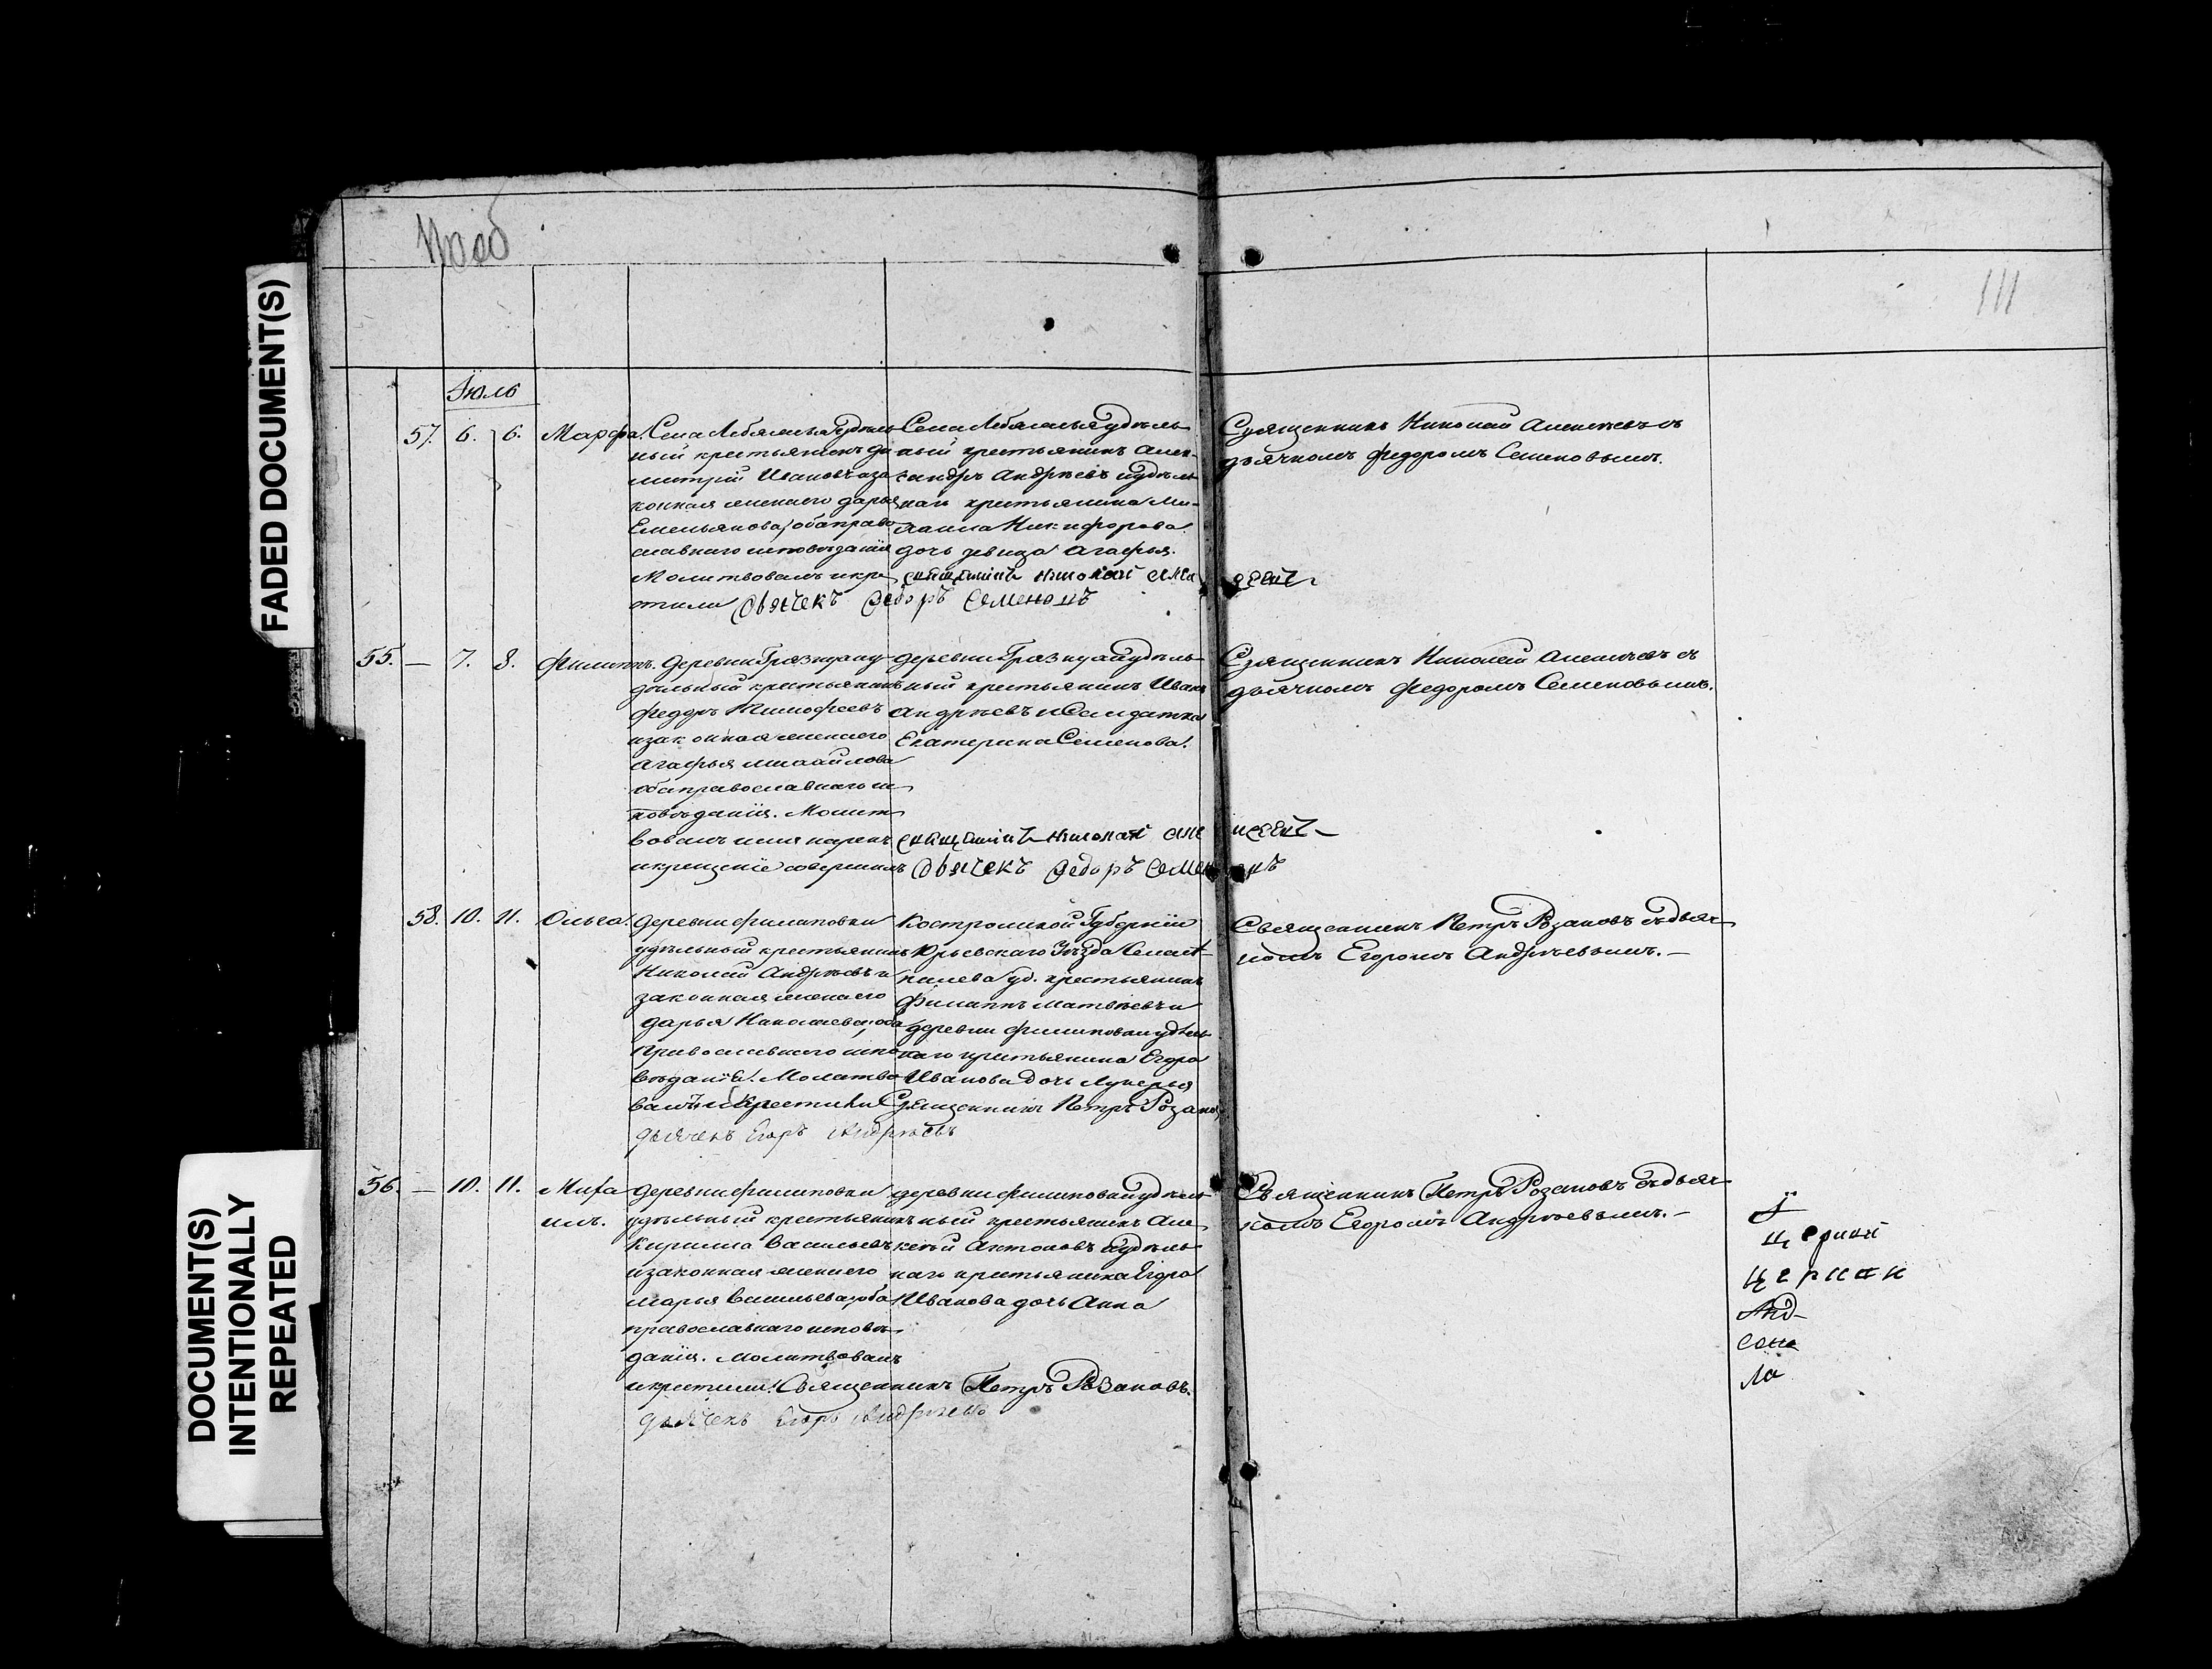 FADED DOCUMENT(S)
DOCUMENT(S)
INTENTIONALLY
REPEATED
111
Іюль
57. 6. 6. Марфа.
Села Лебяжья удѣль
ный крестьянинъ Ди
митрій Ивановъ и за
конная жена его Дарья
Емельянова, оба право
славнаго исповѣданія
Молитвовалъ и кре
стили
Села Лебяжья удѣль
ный крестьянинъ Алек-
сандръ Андрѣевъ и удѣль
наго крестьянина Ми-
хаила Никифорова
дочь девица Агафья.
священникъ Николай Але ѯеевъ
Дьячекъ Федоръ Семеновъ
Священникъ Николай Алексѣевъ съ
дьячкомъ Федоромъ Семеновымъ.
55. — 7. 8. Филиппъ.
деревни Грязнухи у
дѣльный крестьянинъ
Федоръ Тимофеевъ
и законная жена его
Агафья Михайлова
оба православнаго ис
повѣданія. Молит
вовалъ имя нарекъ
и крещеніе совершилъ
деревни Грязнухи удѣль
ный крестьянинъ Иванъ
Андрѣевъ и Солдатка
Екатерина Семенова.
священникъ Николай Але ѯеевъ
Дьячекъ Федоръ Семеновъ
Священникъ Николай Алексѣевъ съ
дьячкомъ Федоромъ Семеновымъ.
58. 10. 11. Ольга.
деревни Филиповки
удѣльный крестьянинъ
Николай Андрѣевъ и
законная жена его
Дарья Николаева, оба
Православнаго испо
вѣданія. Молитво
валъ и Крестили
Костромской Губерніи
Юрьевскаго Уѣзда Села
уд. крестьянинъ
Филиппъ Матвѣевъ и
деревни Филиповки удѣль
наго крестьянина Егора
Иванова дочь Лукерья
Священникъ Петръ Розановъ
дьячекъ Егоръ Андрѣевъ
Священникъ Петръ Розановъ съ дьяч
комъ Егоромъ Андрѣевымъ. —
56. — 10. 11. Мифа
илъ.
деревни Филиповки
удѣльный крестьянинъ
Кирилло Васильевъ
и законная жена его
Марья Васильева, оба
православнаго исповѣ
данія. Молитвовалъ
и крестили. Священникъ Петръ Розановъ.
дьячекъ Егоръ Андрѣевъ
деревни Филиповки удѣль
ный крестьянинъ Але
ксѣй Антоновъ и удѣль
наго крестьянина Егора
Иванова дочь Анна
Священникъ Петръ Розановъ съ дьяч
комъ Егоромъ Андрѣевымъ. —